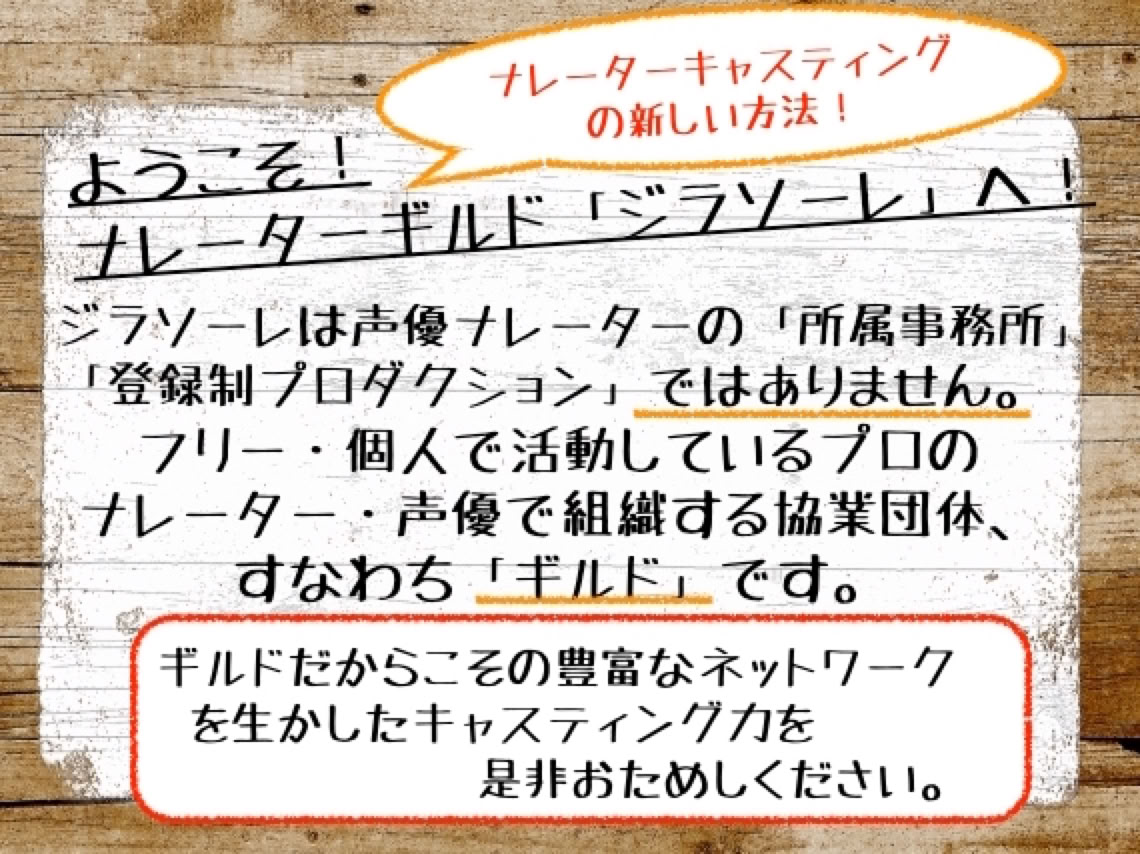 ナレーターキャスティング
の新しい方法！
ようこそ！
ナレーターギルド「ジラソーレ」へ！
ジラソーレは声優ナレーターの「所属事務所」
「登録制プロダクション」ではありません。
フリー・個人で活動しているプロの
ナレーター・声優で組織する協業団体、
すなわち「ギルド」です。
ギルドだからこその豊富なネットワーク
を生かしたキャスティング力を
是非おためしください。